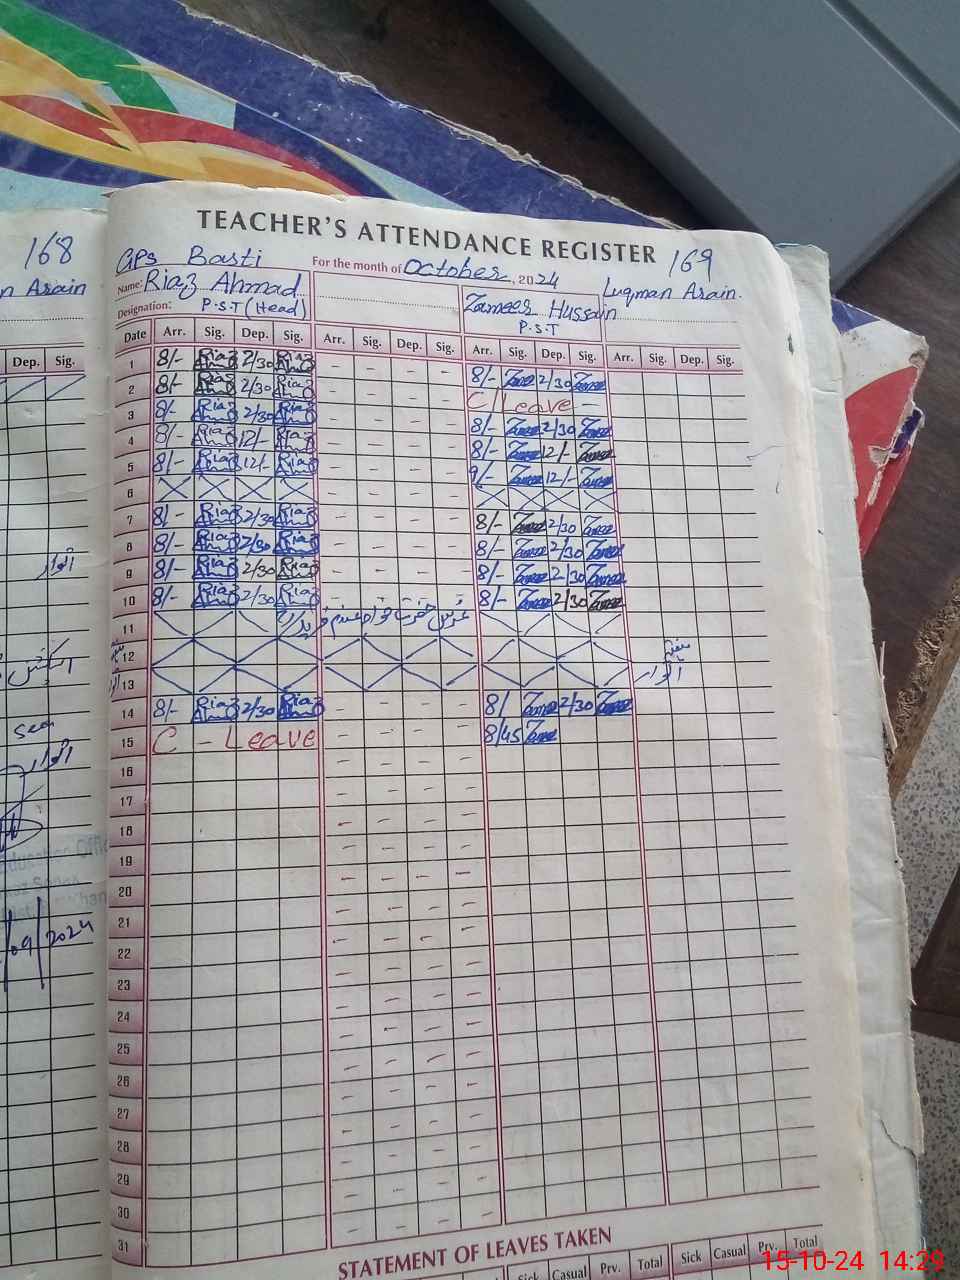 168
n Arain
Dep. Sig.
اتوار
اتوار
09/2024
TEACHER'S ATTENDANCE REGISTER
169
GPS Basti For the month of October, 2024 Luqman Arain.
Name: Riaz Ahmad Zameer Hussain
Designation: P.S.T (Head) P.S.T
Date Arr. Sig. Dep. Sig. Arr. Sig. Dep. Sig. Arr. Sig. Dep. Sig. Arr. Sig. Dep. Sig.
1 8/- Riaz Ahmad 2/30 Riaz Ahmad - - - - 8/- Zameer 2/30 Zameer
2 8/- Riaz Ahmad 2/30 Riaz Ahmad - - - - C/Leave -
3 8/- Riaz Ahmad 2/30 Riaz Ahmad - - - - 8/- Zameer 2/30 Zameer
4 8/- Riaz Ahmad 12/- Riaz Ahmad - - - - 8/- Zameer 12/- Zameer
5 8/- Riaz Ahmad 12/- Riaz Ahmad - - - - 9/- Zameer 12/- Zameer
6
7 8/- Riaz Ahmad 2/30 Riaz Ahmad - - - - 8/- Zameer 2/30 Zameer
8 8/- Riaz Ahmad 2/30 Riaz Ahmad - - - - 8/- Zameer 2/30 Zameer
9 8/- Riaz Ahmad 2/30 Riaz Ahmad - - - - 8/- Zameer 2/30 Zameer
10 8/- Riaz Ahmad 2/30 Riaz Ahmad - - - - 8/- Zameer 2/30 Zameer
11 عرس حضرت خواجہ غلام فرید
12 ہفتہ
13 اتوار
14 8/- Riaz Ahmad 2/30 Riaz Ahmad - - - - 8/ Zameer 2/30 Zameer
15 C - Leave - - - - 8/45 Zameer
16 - - - -
17 - - - -
18 - - - -
19 - - - -
20 - - - -
21 - - - -
22 - - - -
23 - - - -
24 - - - -
25 - - - -
26 - - - -
27 - - - -
28 - - - -
29 - - - -
30 - - - -
31 - - - -
STATEMENT OF LEAVES TAKEN
Sick Casual Prv. Total Sick Casual Prv. Total
15-10-24 14:29